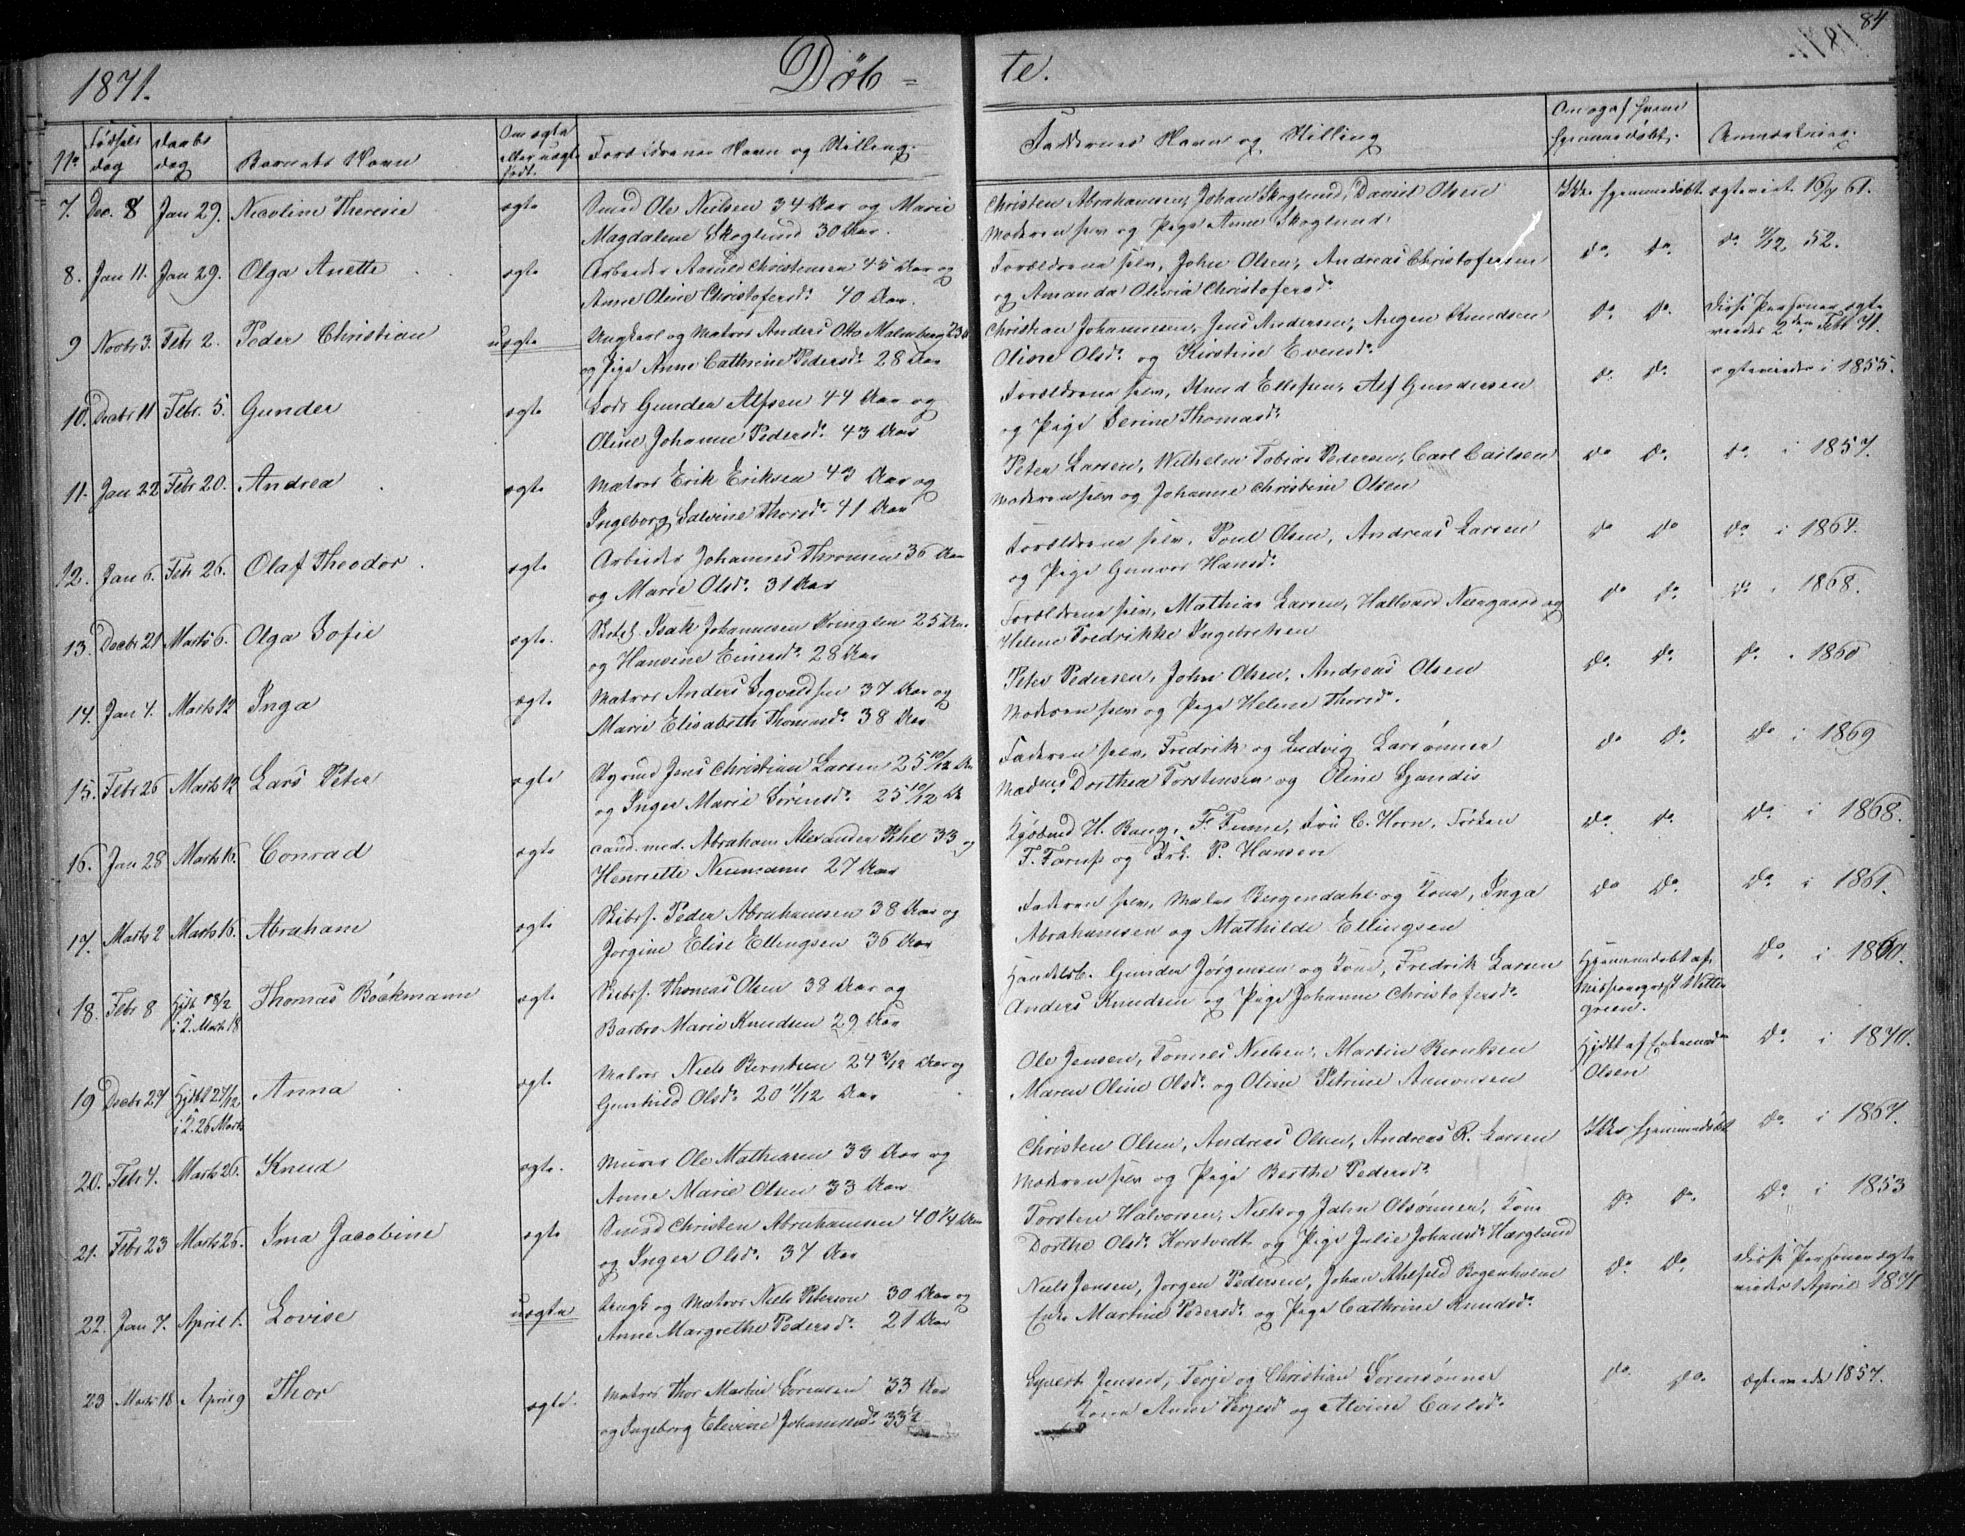 84
1871. Døbte.
No Fødsels dag Daabs dag Barnets Navn Om ægte eller uægte født. Forældrenes Navn og Stilling. Faddernes Navn og Stilling Om og af hvem hjemmedøbt. Anmærkning.
7. Dec. 8 Jan 29. Nicoline Theresie ægte Smed Ole Nielsen 34 Aar og Marie Christen Abrahamsen, Johan Skoglund, Daniel Olsen Ikke hjemmedøbt ægteviet
Magdalene Skoglund 30 Aar. Moderen selv og Pige Anne Skoglund.
8. Jan 11. Jan 29. Olga Anette ægte Arbeider Christensen 45 Aar og Forældrene selv, John Olsen, Andreas Christofersen do do do 52.
Anne Oline Christofersd. 40 Aar. og Amanda Olivia Christofersd.
9 Novbr 3. Febr 2. Peder Christian uægte Ungkarl og Matros Anders Otto Malmberg Christian Johannesen, Jens Andersen, Knudsen do do Disse Personer ægte
og Pige Anne Cathrine Pedersd. 28 Aar Oline Olsd. og Kirstine Evensd. viedes 2den Febr 71.
10. Decbr 11 Febr. 5. Gunder ægte Lods Gunder Alfsen 44 Aar og Forældrene selv, Knud Ellefsen, Alf Gundersen do do ægteviedes i 1855.
Oline Johanne Pedersd. 43 Aar og Pige Serine Thomasd.
11. Jan 22 Febr 20. Andrea ægte Matros Erik Eriksen 43 Aar og Peter Larsen, Wilhelm Tobias Pedersen, Carl Carlsen do do do i 1857.
Ingeborg Salvine Thorsd. 41 Aar Moderen selv og Johanne Christine Olsen
12. Jan 6. Febr 26. Olaf Theodor ægte Arbeider Johannes Thronsen 36 Aar Forældrene selv, Poul Olsen, Andreas Larsen do do do i 1864.
og Marie Olsd. 31 Aar og Pige Gunvor Hansd.
13. Decbr 21 Marts 6. Olga Sofie ægte. Isak Johannesen 25 Aar Forældrene selv, Mathias Larsen, Hallvard Nærgaard og do do do i 1868.
og Hansine Einarsd. 28 Aar Helene Fredrikke Ingebretsen
14. Jan 4. Marts 12 Inga ægte Matros Anders Sigvaldsen 37 Aar og Peter Pedersen, John Olsen, Andreas Olsen do do do i 1860
Marie Elisabeth Thomasd. 38 Aar Moderen selv og Pige Helene Thorsd.
15. Febr 26 Marts 12 Lars Peter ægte Jens Christian Larsen 25 10/12 Aar Faderen selv, Fredrik og Ludvig Larsønner do do do i 1869
og Inger Marie Sørensd. 25 10/12 Aar Dorthea Torstensen og Oline
16. Jan 28 Marts 16. Conrad ægte cand. med. Abraham Alexander 33 og H. Bang, F. C. Horn, do do do i 1868.
Henriette Neumann 27 Aar F. og P. Hansen
17. Marts 2 Marts 16. Abraham ægte Skibsf. Peder Abrahamsen 38 Aar og Faderen selv, Maler Bergendahl og Kone, Inga do do do i 1861.
Jørgine Elise Ellingsen 36 Aar Abrahamsen og Mathilde Ellingsen
18. Febr 8 Hjdbt 18/2 Thomas Böckmann ægte Skibsf. Thomas Olsen 38 Aar og Handelsb. Gunder Jørgensen og Kone, Fredrik Larsen Hjemmedøbt af do i 1860.
i 2. Marts 18 Barbro Marie Knudsen 29 Aar Anders Knudsen og Pige Johanne Christofersd. Missionspræst
green.
19 Decbr 24 Hjdbt 27/12 Anna ægte Matros Niels Berntsen 24 3/12 Aar og Ole Jensen, Tønnes Nielsen, Martin Berntsen Hjdbt af do i 1870.
i 2. 26 Marts Gunhild Olsd. 20 1/12 Aar Maren Oline Olsd. og Oline Petrine Olsen
20. Febr 4. Marts 26. Knud ægte. Murer Ole Mathiasen 33 Aar og Christen Olsen, Andreas Olsen, Andreas R. Larsen Ikke hjemmedøbt do i 1867.
Anne Marie Olsen 33 Aar Moderen selv og Pige Berthe Pedersd.
21. Febr 23 Marts 26. Ima Jacobine ægte Smed Christen Abrahamsen 40 1/4 Aar Torsten Halvorsen, Niels og John Olsønner, Kone do do do i 1853
og Inger Olsd. 37 Aar Dorthe Olsd. Korstvedt og Pige Julie Johansd.
22. Jan 7. April 1. Lovise uægte Ungk. og Matros Niels Petersen 30 Aar og Niels Jensen, Jørgen Pedersen, Johan Ahlfeld Bogenholm do do Disse Personer ægte
Anne Margrethe Pedersd. 21 Aar Enke Martine Pedersd. og Pige Cathrine Knudsd. viedes 1 April 1871
23 Marts 18 April 9 Thor ægte. Matros Thor Martin Sørensen 33 Aar Syvert Jensen, Terje og Christian Sørensønner do do ægteviede 1857.
og Ingeborg Elevine Johannesd. 33 1/2 Kone Anne Terjesd. og Alvine Carlsd.